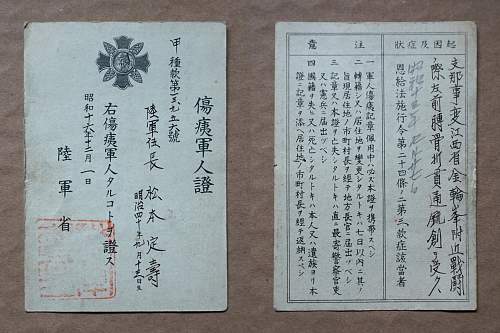 傷痍軍人證
甲種款第
陸軍伍長 松本定壽
明治四十年九月十三日生
右傷痍軍人タルコトヲ證ス
昭和十六年十二月一日
陸軍省
狀症及因起
支那事變江西省金輪峯附近戰鬪
ノ際左前膊骨折貫通銃創ヲ受ク
昭和十三年
恩給法施行令第二十四條ノ二第三款症該當者
意注
一 軍人傷痍記章佩用中ハ必ズ本證ヲ携帶スベシ
二 轉籍シ又ハ居住地ヲ變更シタルトキハ七日以内ニ其ノ
旨現居住地ノ市町村長ヲ經テ地方長官ニ届出ヅベシ
三 記章又ハ本證ヲ亡失シタルトキハ直ニ最寄警察官吏
又ハ憲兵ニ届出ヅベシ
四 國籍ヲ失ヒ又ハ死亡シタルトキハ本人又ハ遺族ヨリ本
證ニ記章ヲ添ヘ居住地ノ市町村長ヲ經テ返納スベシ